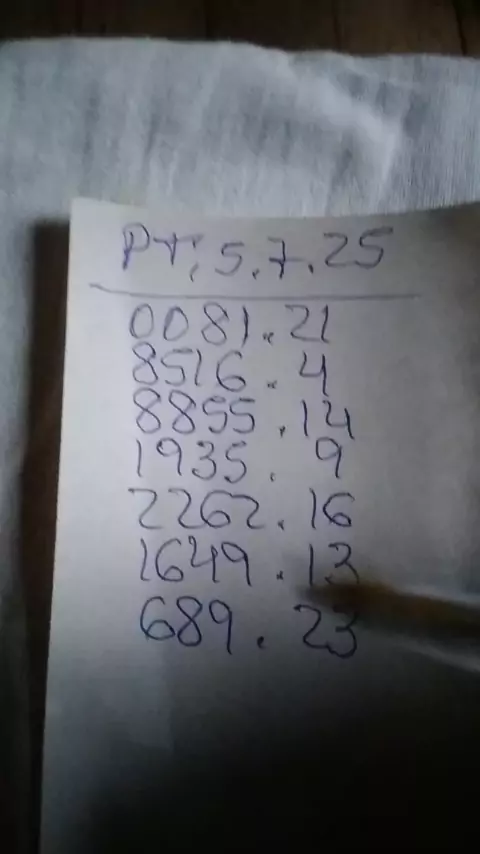 PT; 5.7.25
0081. 21
8516. 4
8855. 14
1935. 9
2262. 16
1649. 13
689. 23